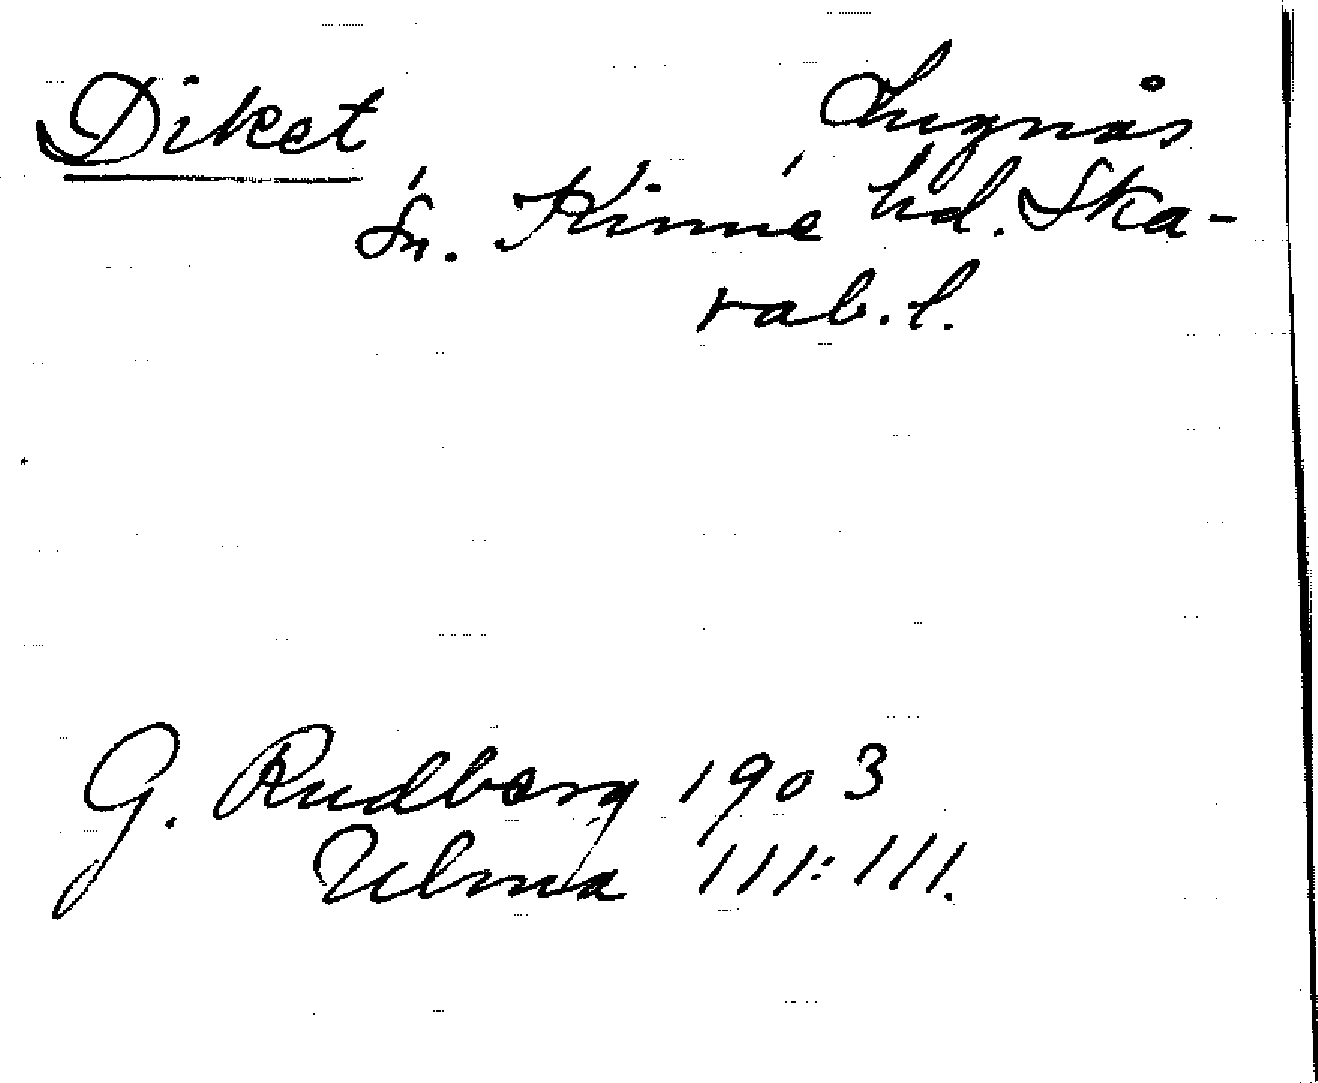 Diket
Lugnås
sn. Kinne hd. Ska-
rab. l.
G. Rudberg 1903
Ulma 111:111.